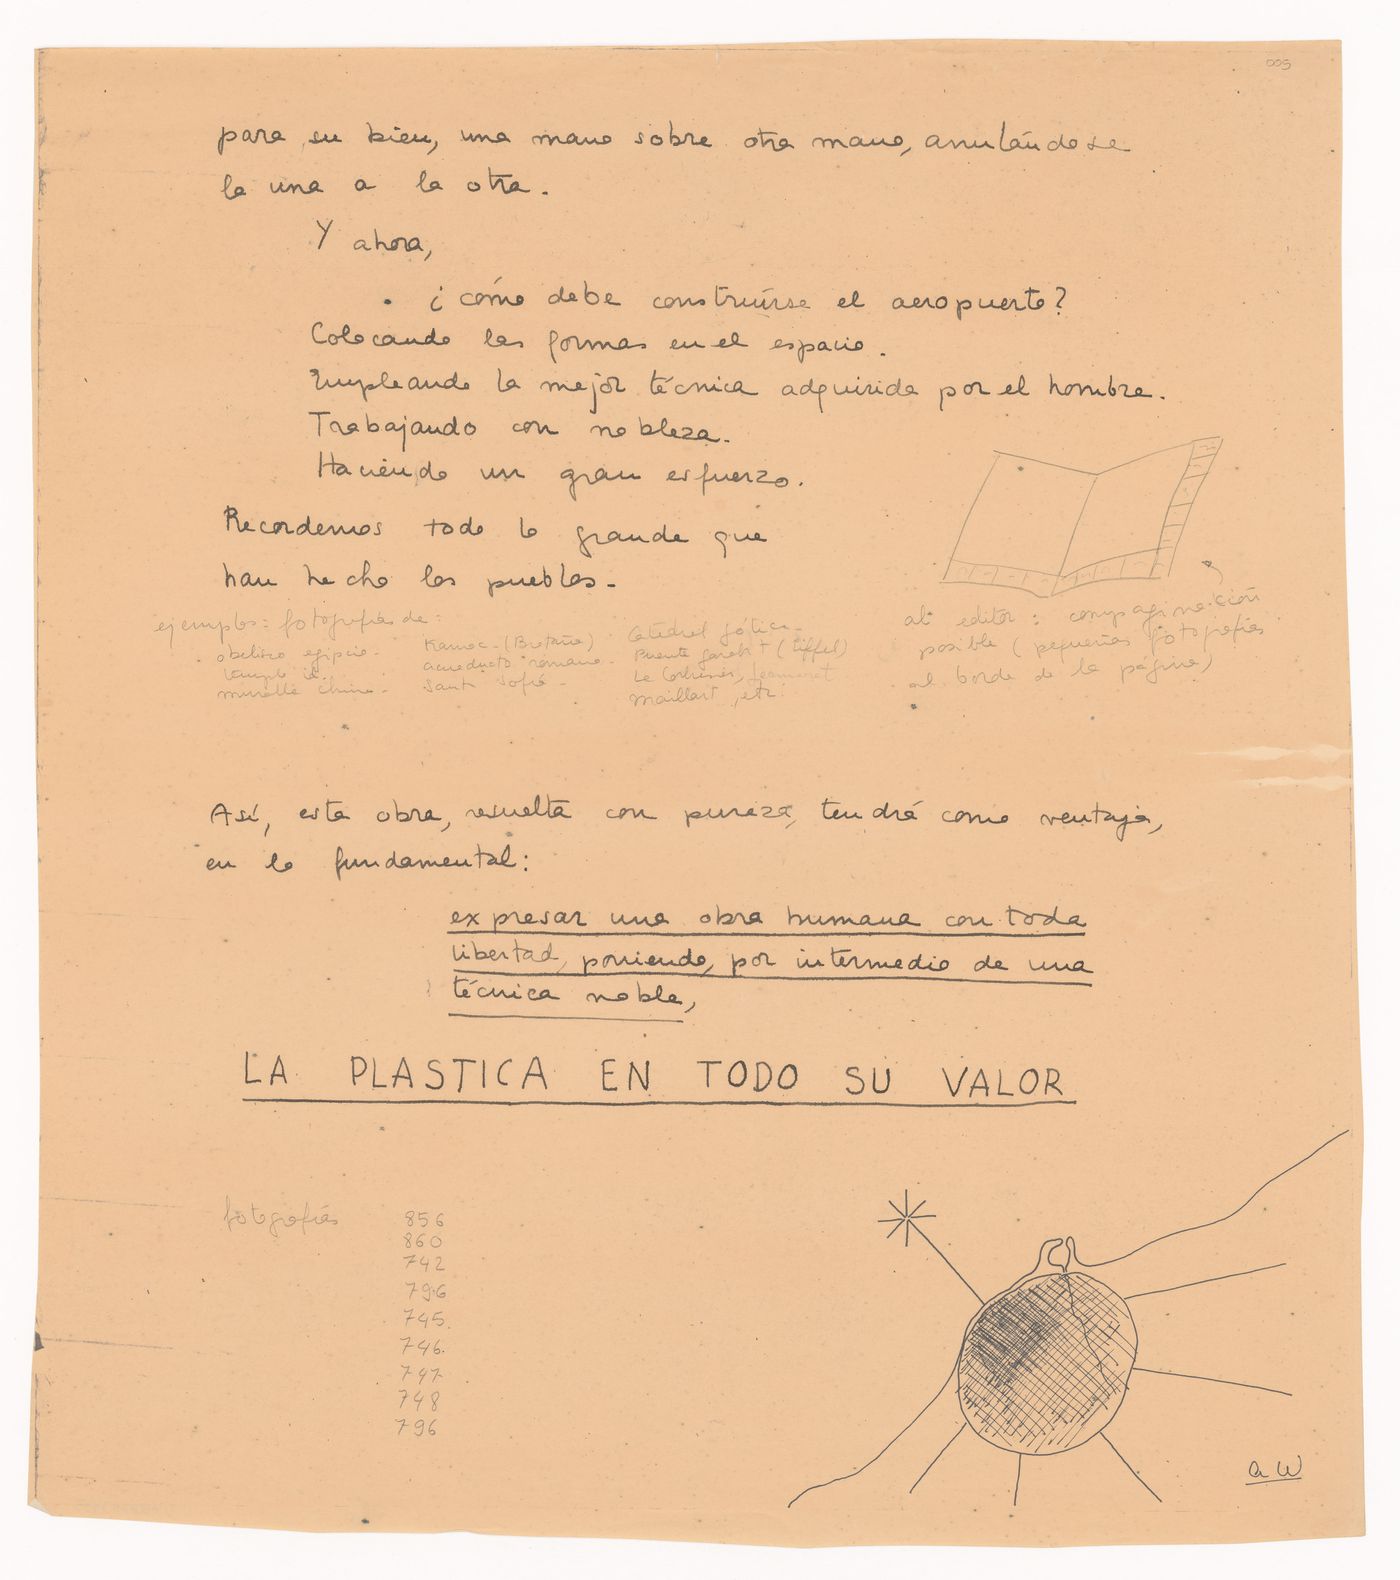 005
para su bien, una mano sobre otra mano, anulándose
la una a la otra.
Y ahora,
¿cómo debe construírse el aeropuerto?
Colocando las formas en el espacio.
Empleando la mejor técnica adquirida por el hombre.
Trabajando con nobleza.
Haciendo un gran esfuerzo.
Recordemos todo lo grande que
han hecho los pueblos.
ejemplos: fotografías de:
obelisco egipcio.
templo
muralla china.
Karnac. (Bretaña)
acueducto romano.
Santa Sofía.
Catedral gótica.
Puente Garabit (Eiffel)
Le Corbusier, Jeanneret
Maillart, etc.
al editor: compaginación
posible (pequeñas fotografías
al borde de la página)
Así, esta obra, resuelta con pureza, tendrá como ventaja,
en lo fundamental:
expresar una obra humana con toda
libertad, poniendo, por intermedio de una
técnica noble,
LA PLASTICA EN TODO SU VALOR
fotografías 856
860
742
796
745.
746.
747.
748
796
a W